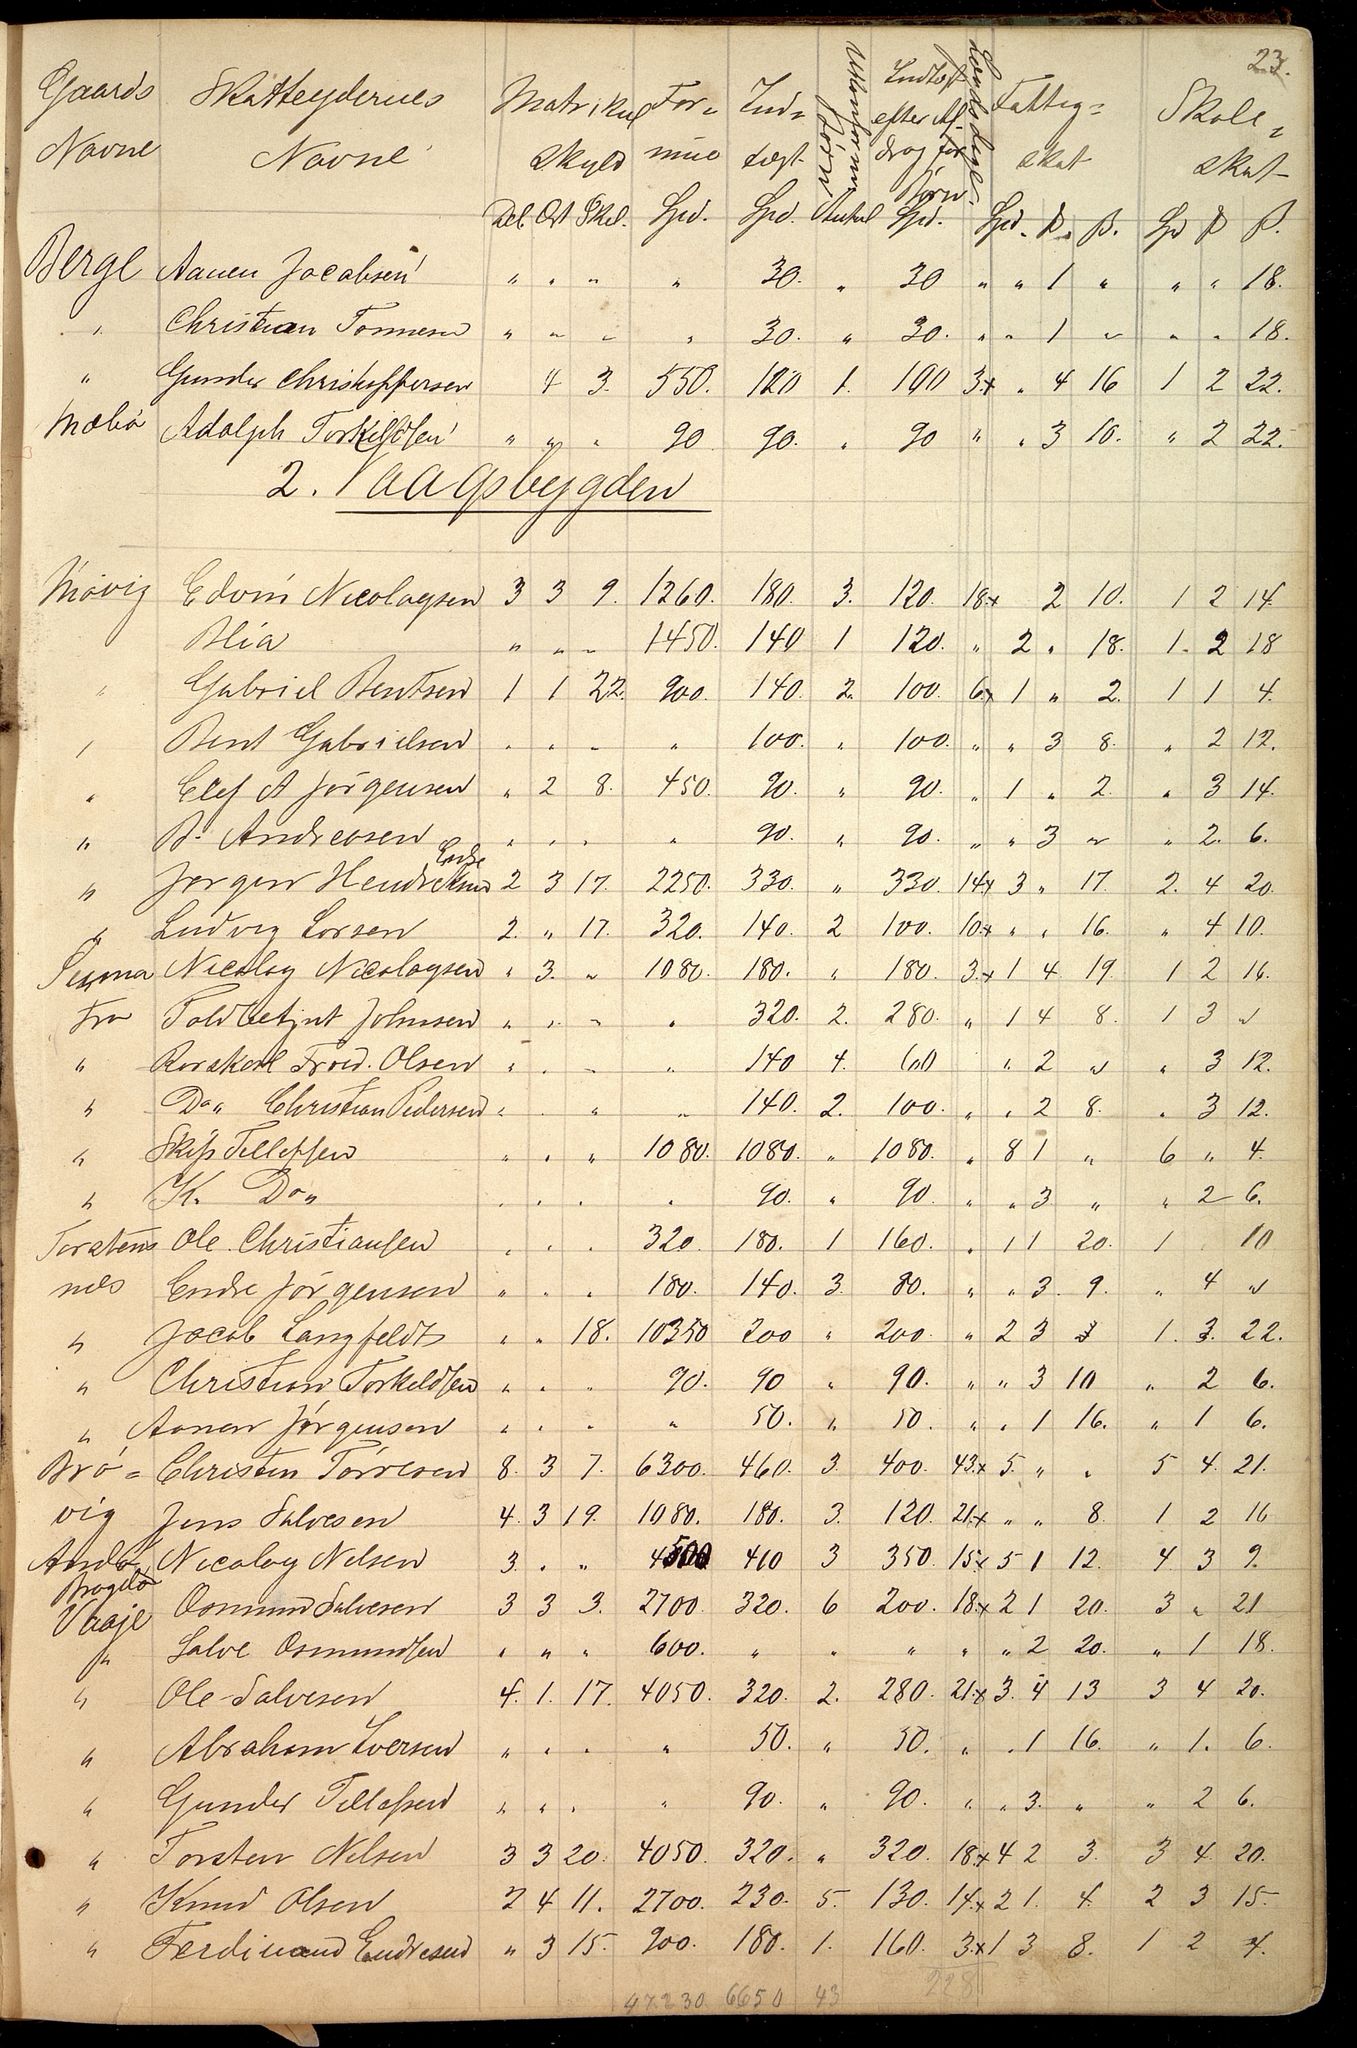 23.
Gaards Navne | Skatteydernes Navne | Matrikul Skyld Dal. Ort Skil. | For- mue Spd. | Ind- tægt Spd. | Børn Antal | Indtægt efter Af- drag for Børn. Spd. | Fattig- skat Spd. P. P. | Skole- skat Spd P P.
Berge Aanen Jacobsen " " " " 30. " 30 " " 1 " " " 18.
" Christian Tønnesen " " " " 30. " 30. " " 1 " " " 18.
" Gunder Christoffersen 4 3. 550. 120 1. 100 3x " 4 16 1 2 22.
Mæbø Adolph Torkildsen " " " 90 90. " 90 " " 3 10. " 2 22.
2. Vaagsbygden
Møvig Edvin Nicolaysen 3 3 9. 1260. 180. 3. 120. 18x 2 10. 1 2 14.
" " " 1450. 140 1 120. " 2 " 18. 1. 2 18
" Gabriel Bentsen 1 1 22. 900. 140. 2. 100. 6x 1 " 2. 1 1 4.
" Bent Gabrielsen " " " " 100. " 100. " " 3 8. " 2 12.
" Elef A Jørgensen " 2 8. 450. 90. " 90. " 1 " 2. " 3 14.
" B. Andreasen " " " " 90. " 90. " " 3 " " 2. 6.
" Jørgen Hendriksen Enke 2 3 17. 2250. 330. " 330. 14x 3 " 17. 2. 4 20.
" Ludvig Larsen 2. " 17. 320. 140. 2 100. 10x " " 16. " 4 10.
Nicolay Nicolaysen " 3. " 1080. 180. " 180. 3x 1 4. 19. 1 2 16.
Toldbetjnt Johnsen " " " " 320. 2. 280. " 1 4 8. 1 3 "
" Rorskarl Fred. Olsen " " " " 140 4. 60 " 2 " " 3 12.
" Do " Christian Pedersen " " " " 140. 2. 100. " " 2 8. " 3 12.
" Skip Tellefsen " " " 1080. 1080. " 1080. " 8 1 " 6 " 4.
" K. Do " " " " " 90. " 90. " " 3 " " 2 6.
Torstens Ole Christiansen " " " 320. 180. 1 160. " 1 1 20. 1 10
næs Endre Jørgensen " " " 180. 140. 3. 80. " " 3. 9. " 4 "
" Jacob Langfeldts " " 18. 10350 200 " 200. " 2 3 3 1. 3. 22.
" Christian Torkeldsen " " " 90. 90 " 90. " " 3 10 " 2 6.
" Aanen Jørgensen " " " " 50. " 50. " " 1 16. " 1 6.
Brø- Christen Tørresen 8. 3 7. 6300. 460. 3. 400. 43x 5. " " 5 4. 21.
vig Jens Salvesen 4. 3 19. 1080. 180. 3. 120. 21x " " 8. 1 2 16
Andø Nicolay Nilsen 3. " " 4500 410 3 350. 15x 5 1 12. 4. 3 9.
Vaaje Osmund Salvesen 3 3 3. 2700. 320. 6 200. 18x 2 1 20. 3 " 21
" Salve Osmundsen " " " 600. " " " " " 2 20. " 1 18.
" Ole Salvesen 4. 1. 17. 4050. 320. 2. 280. 21x 3. 4 13 3 4 20.
" Abraham Iversen " " " " 50. " 50. " " 1 16. " 1. 6.
" Gunder Tellefsen " " " " 90. " 90. " " 3. " " 2 6.
" Torsten Nilsen 3 3 20. 4050. 320. " 320. 18x 4 2 3. 3 4. 20.
" Knud Olsen 2 4 11. 2700. 230. 5. 130. 14x 2 1. 4. 2 3 15.
" Ferdinand Endresen " 3 15. 900. 180. 1. 160. 3x 1 3 8. 1 2 4.
47.230. 6650 43 228